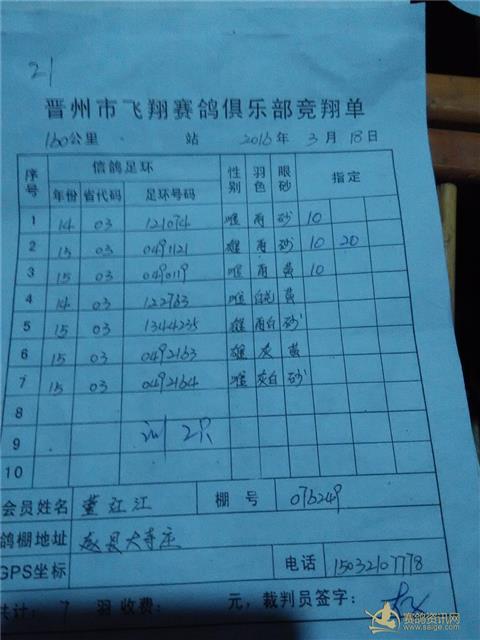 21
晋州市飞翔赛鸽俱乐部竞翔单
160公里 站 2016年 3月 18日
序号 信鸽足环 性别 羽色 眼砂 指定
年份 省代码 足环号码
1 14 03 121074 雌 雨 砂 10
2 15 03 0491121 雄 雨 砂 10 20
3 15 03 0490119 雌 雨 黄 10
4 14 03 122763 雌 黄
5 15 03 1344235 雄 雨白 砂
6 15 03 0492163 雄 灰 黄
7 15 03 0492164 雌 灰白 砂
8
9 训 2只
10
会员姓名 董江江 棚号 076249
鸽棚地址 赵县大寺庄
GPS坐标 电话 15032107778
共计: 7 羽 收费: 元, 裁判员签字:
赛鸽资讯网
www.saige.com